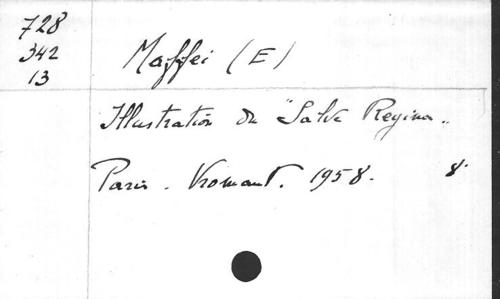 728
342
13
Maffei (E)
Illustration du "Salve Regina"
Paris. Vromant. 1958. 8°